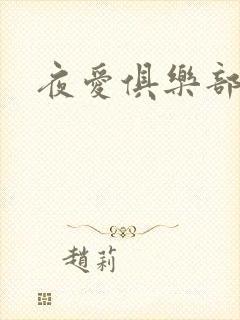 夜愛俱樂部
趙莉